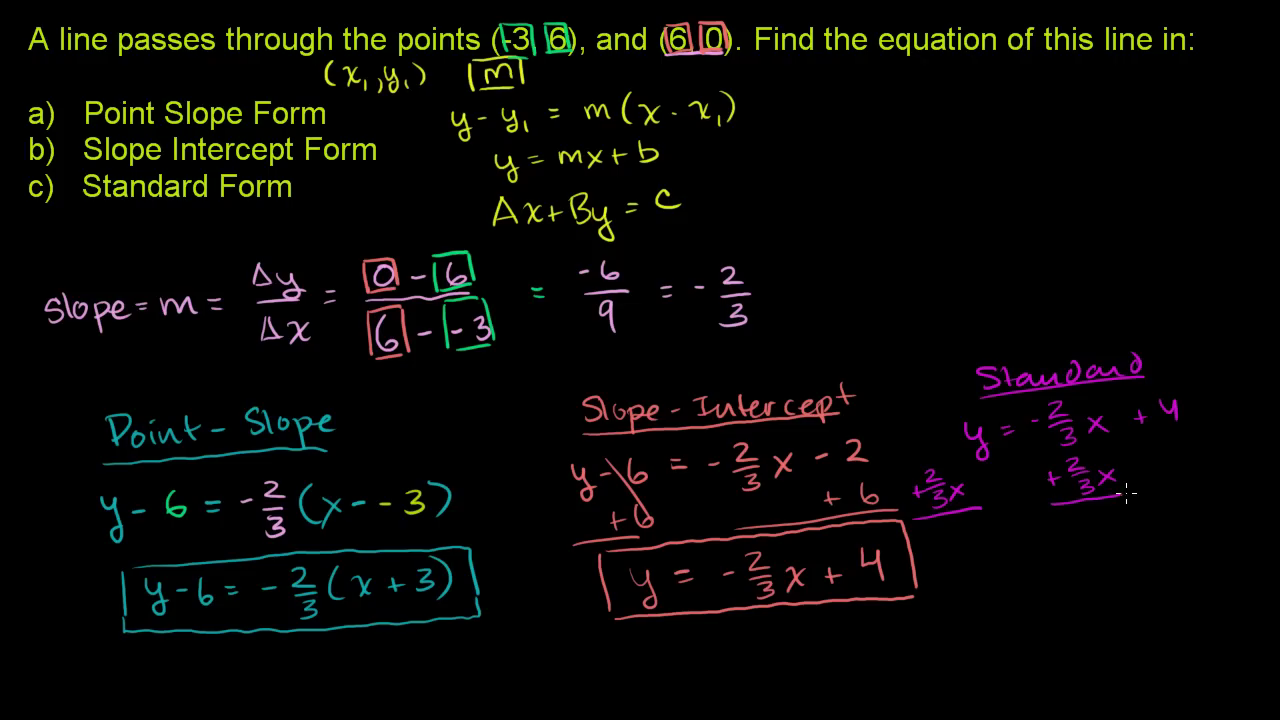 A line passes through the points (-3, 6), and (6 0). Find the equation of this line in:
(x₁, y₁) m
a) Point Slope Form
y - y₁ = m(x - x₁)
b) Slope Intercept Form
y = mx + b
c) Standard Form
Ax + By = C
Slope = m = Δy/Δx = (0 - 6)/(6 - -3) = -6/9 = -2/3
Point-Slope
y - 6 = -2/3 (x - -3)
y - 6 = -2/3 (x + 3)
Slope-Intercept
y - 6 = -2/3 x - 2
+6 + 6
y = -2/3 x + 4
Standard
y = -2/3 x + 4
+2/3 x + 2/3 x